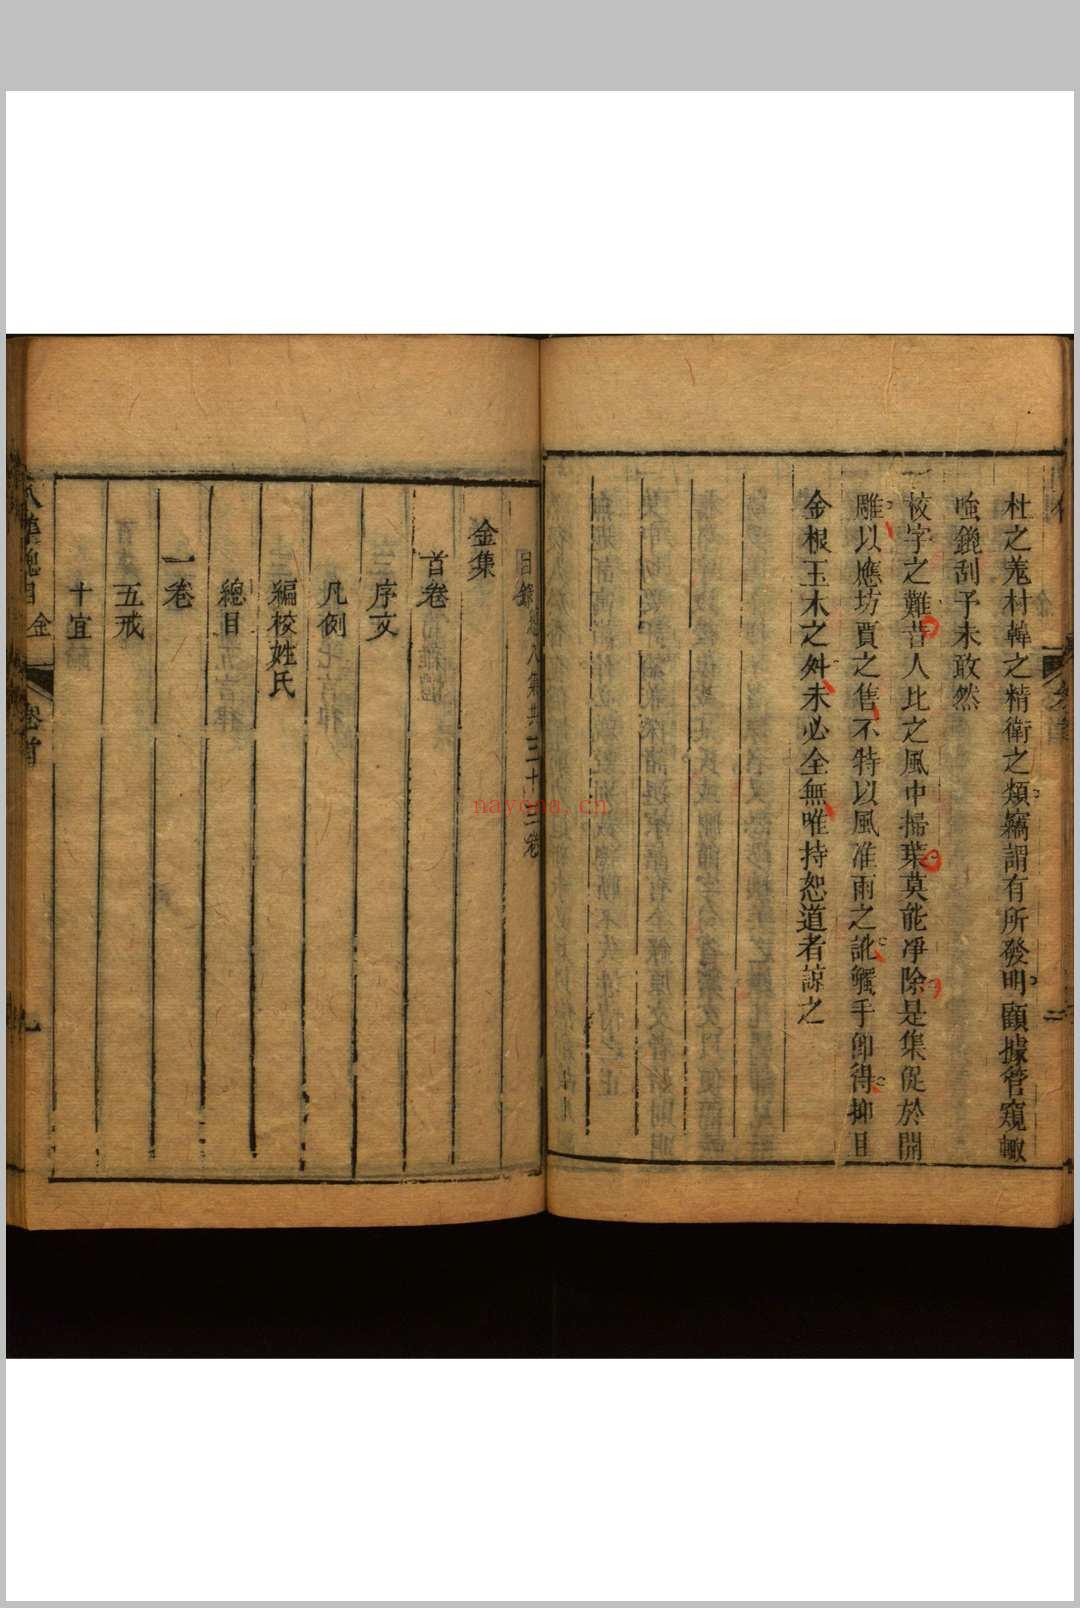 杜之羗村韓之精衛之類竊謂有所發明顧據管窺輙
加鏟刮予未敢然
一校字之難昔人比之風中掃葉莫能净除是集促於開
雕以應坊賈之售不特以風准雨之訛觸手卽得抑且
金根玉木之舛未必全無唯持恕道者諒之
目錄
金集
首卷
序文
凡例
編校姓氏
總目
一卷
五戒
十宜
總目
金
卷首
nayona.cn